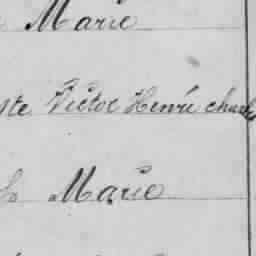 Marie
ste Victor Henri Charles
Marie